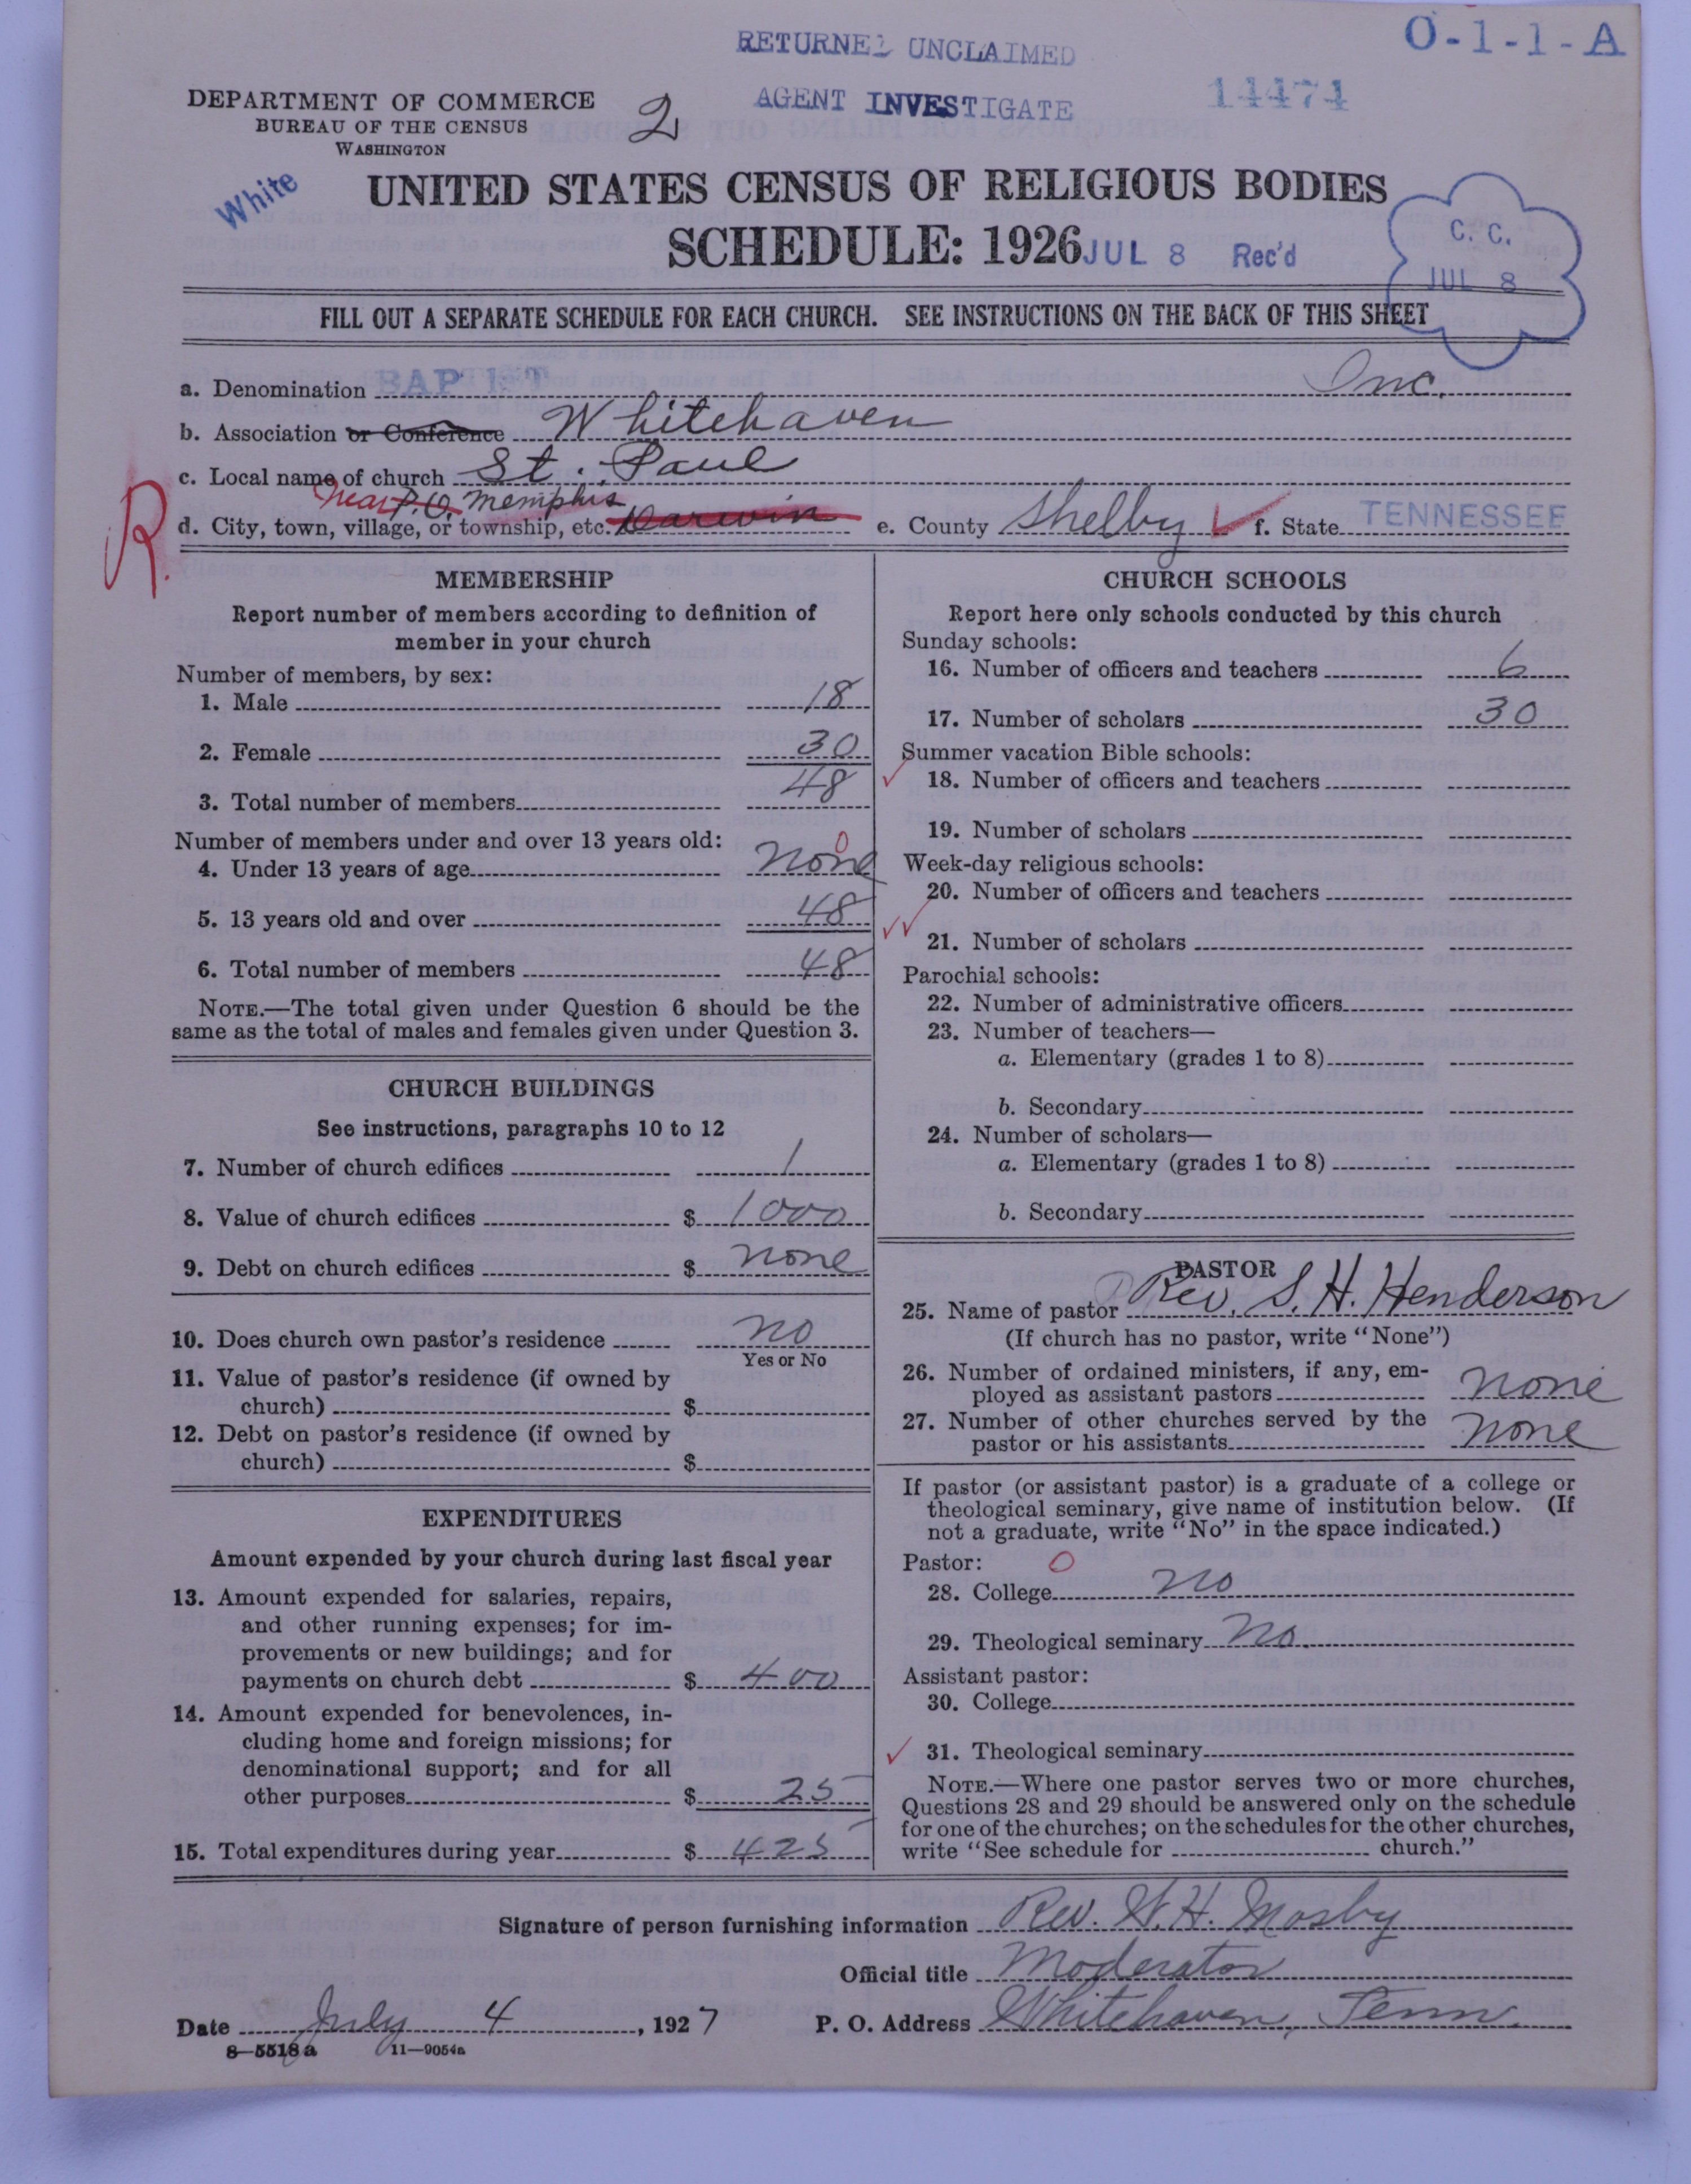 O-1-1-A
RETURNED UNCLAIMED
AGENT INVESTIGATE
14474
DEPARTMENT OF COMMERCE
BUREAU OF THE CENSUS
WASHINGTON
2
White
UNITED STATES CENSUS OF RELIGIOUS BODIES
SCHEDULE: 1926 JUL 8 Rec'd
C. C.
JUL 8
FILL OUT A SEPARATE SCHEDULE FOR EACH CHURCH. SEE INSTRUCTIONS ON THE BACK OF THIS SHEET
a. Denomination BAPTIST Inc.
b. Association or Conference Whitehaven
c. Local name of church St. Paul
near P.O. Memphis
d. City, town, village, or township, etc. Darwin e. County Shelby f. State TENNESSEE
R.
MEMBERSHIP
Report number of members according to definition of
member in your church
Number of members, by sex:
1. Male 18
2. Female 30
3. Total number of members 48
Number of members under and over 13 years old:
0
4. Under 13 years of age none
5. 13 years old and over 48
6. Total number of members 48
NOTE.—The total given under Question 6 should be the
same as the total of males and females given under Question 3.
CHURCH BUILDINGS
See instructions, paragraphs 10 to 12
7. Number of church edifices 1
8. Value of church edifices $ 1000
9. Debt on church edifices $ none
10. Does church own pastor's residence no
Yes or No
11. Value of pastor's residence (if owned by
church) $
12. Debt on pastor's residence (if owned by
church) $
EXPENDITURES
Amount expended by your church during last fiscal year
13. Amount expended for salaries, repairs,
and other running expenses; for im-
provements or new buildings; and for
payments on church debt $ 400
14. Amount expended for benevolences, in-
cluding home and foreign missions; for
denominational support; and for all
other purposes $ 25
15. Total expenditures during year $ 425
CHURCH SCHOOLS
Report here only schools conducted by this church
Sunday schools:
16. Number of officers and teachers 6
17. Number of scholars 30
Summer vacation Bible schools:
18. Number of officers and teachers
19. Number of scholars
Week-day religious schools:
20. Number of officers and teachers
21. Number of scholars
Parochial schools:
22. Number of administrative officers
23. Number of teachers—
a. Elementary (grades 1 to 8)
b. Secondary
24. Number of scholars—
a. Elementary (grades 1 to 8)
b. Secondary
PASTOR
25. Name of pastor Rev. S. H. Henderson
(If church has no pastor, write "None")
26. Number of ordained ministers, if any, em-
ployed as assistant pastors none
27. Number of other churches served by the
pastor or his assistants none
If pastor (or assistant pastor) is a graduate of a college or
theological seminary, give name of institution below. (If
not a graduate, write "No" in the space indicated.)
Pastor: 0
28. College no
29. Theological seminary no.
Assistant pastor:
30. College
31. Theological seminary
NOTE.—Where one pastor serves two or more churches,
Questions 28 and 29 should be answered only on the schedule
for one of the churches; on the schedules for the other churches,
write "See schedule for church."
Signature of person furnishing information Rev. W. H. Mosby
Official title Moderator
Date July 4, 1927 P. O. Address Whitehaven, Tenn.
8—5518a 11—9054a